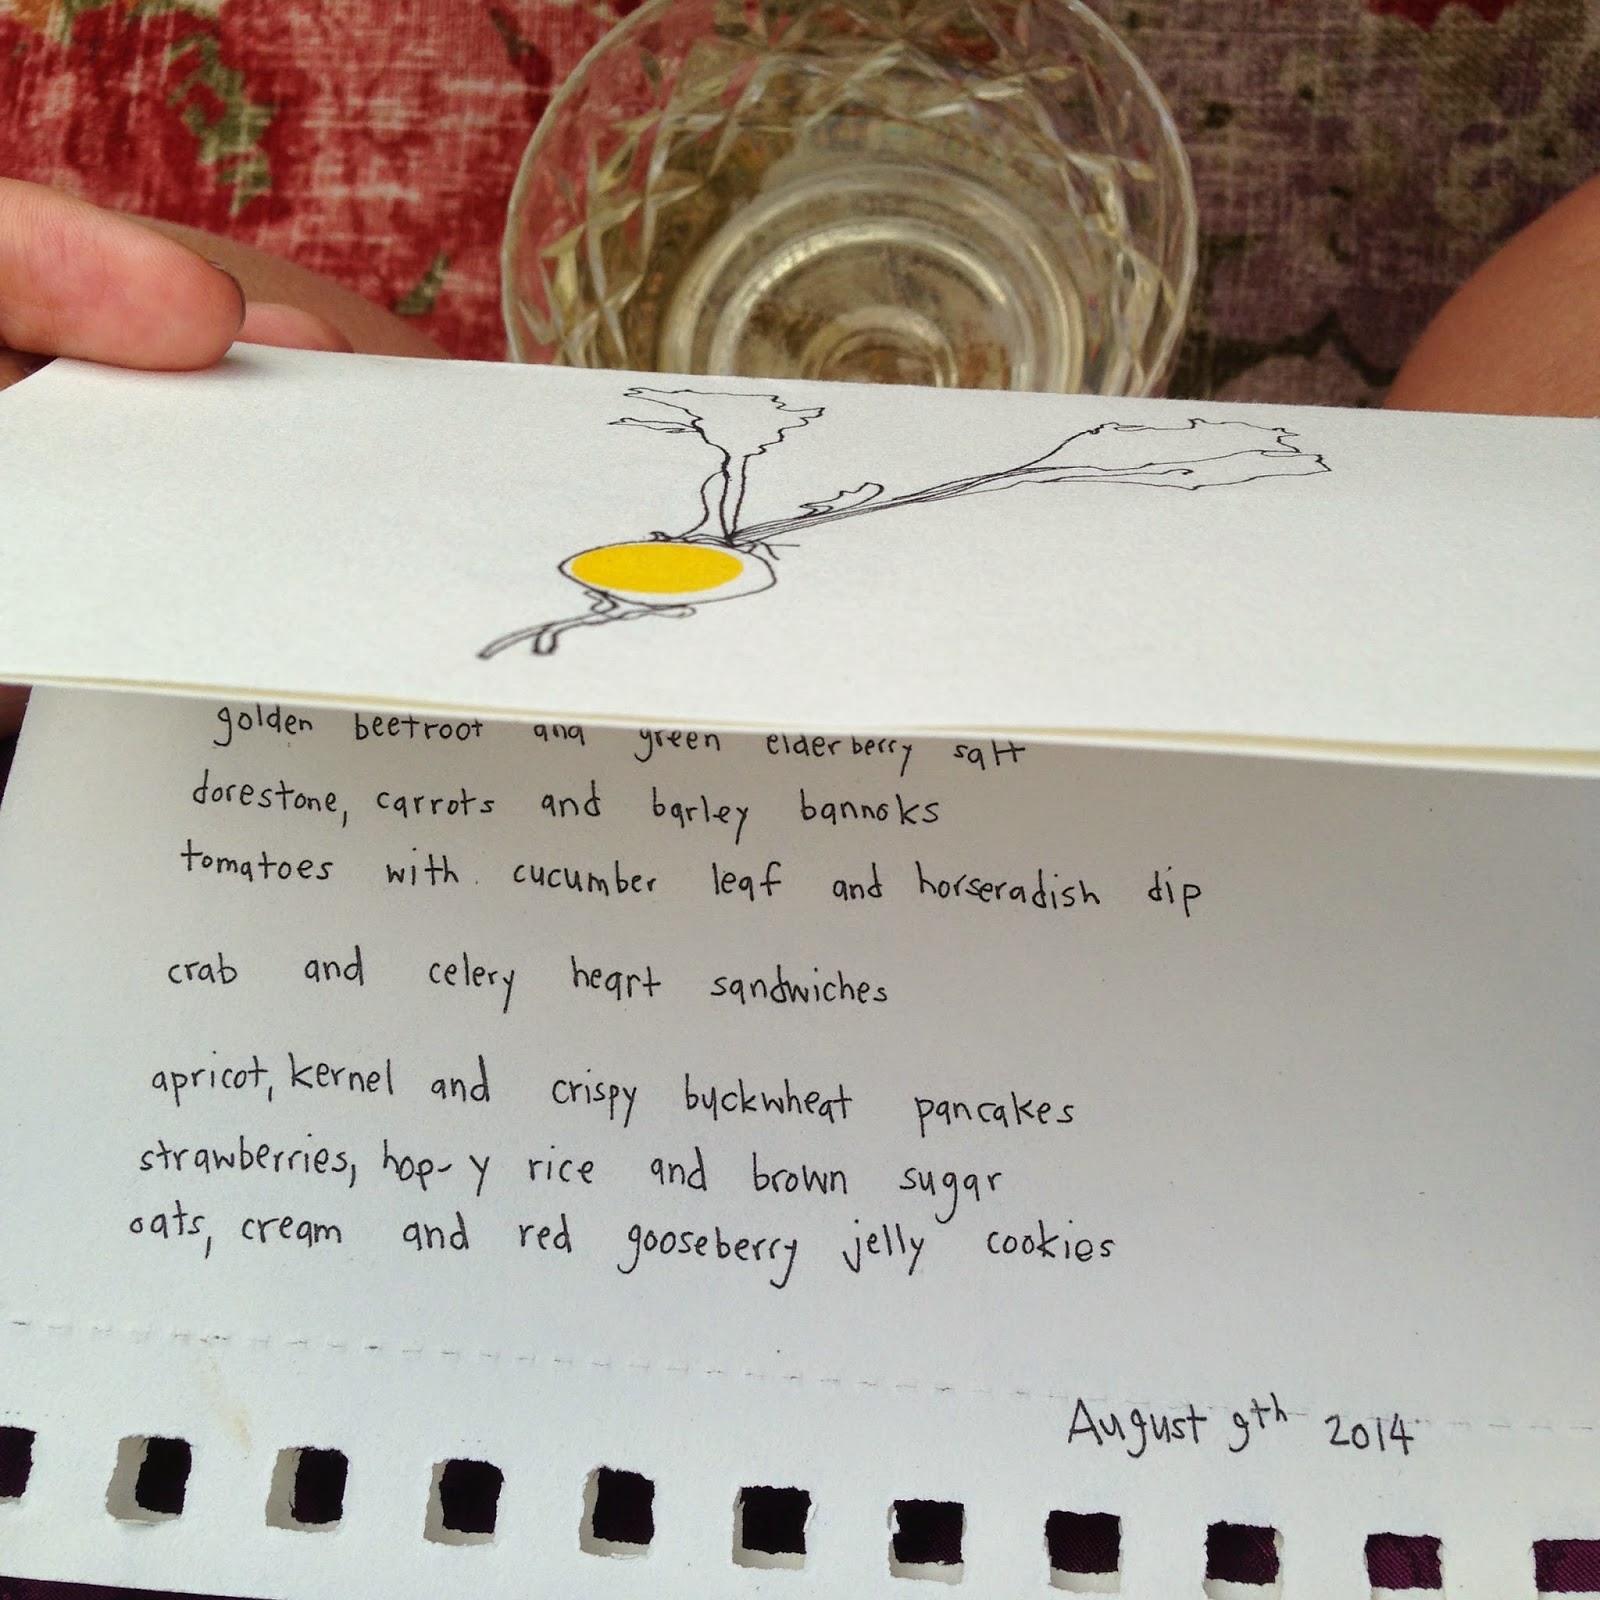 golden beetroot and green elderberry salt
dorestone, carrots and barley bannoks
tomatoes with cucumber leaf and horseradish dip
crab and celery heart sandwiches
apricot, kernel and crispy buckwheat pancakes
strawberries, hop-y rice and brown sugar
oats, cream and red gooseberry jelly cookies
August 9th 2014